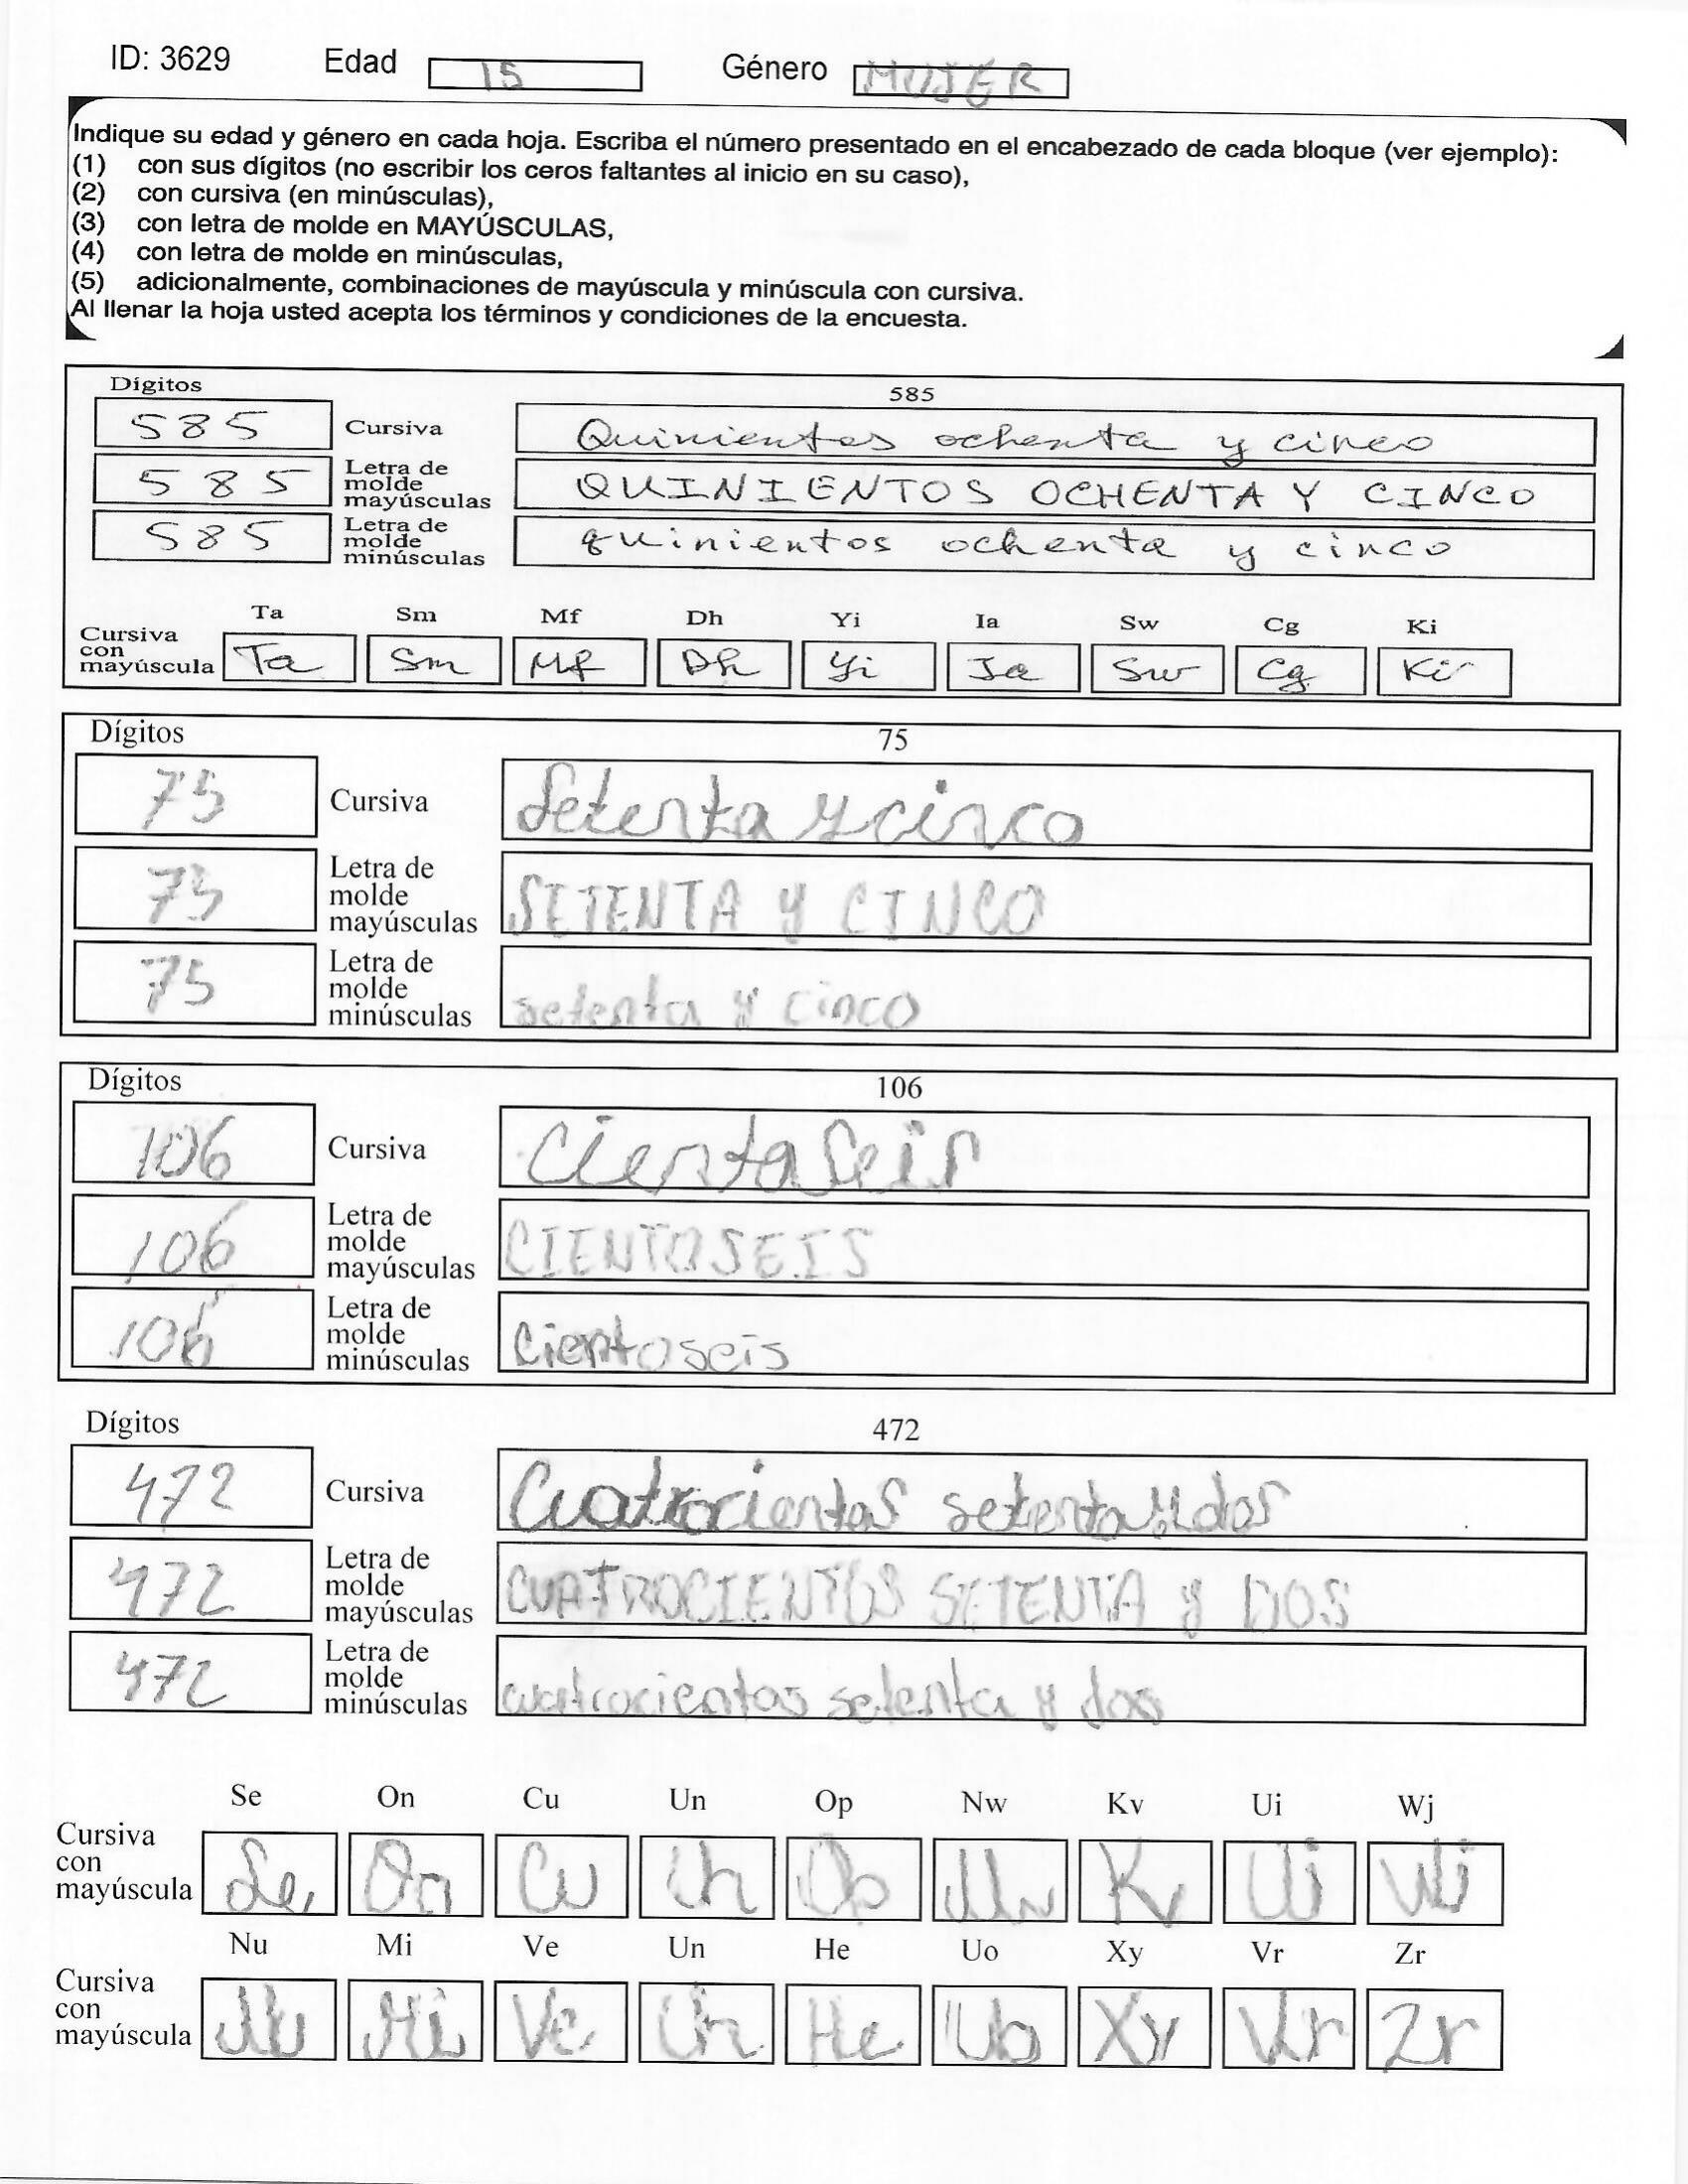 ID: 3629 Edad 15 Género MUJER
Indique su edad y género en cada hoja. Escriba el número presentado en el encabezado de cada bloque (ver ejemplo):
(1) con sus dígitos (no escribir los ceros faltantes al inicio en su caso),
(2) con cursiva (en minúsculas),
(3) con letra de molde en MAYÚSCULAS,
(4) con letra de molde en minúsculas,
(5) adicionalmente, combinaciones de mayúscula y minúscula con cursiva.
Al llenar la hoja usted acepta los términos y condiciones de la encuesta.
Dígitos 585
585 Cursiva Quinientos ochenta y cinco
585 Letra de molde mayúsculas QUINIENTOS OCHENTA Y CINCO
585 Letra de molde minúsculas quinientos ochenta y cinco
Ta Sm Mf Dh Yi Ia Sw Cg Ki
Cursiva con mayúscula Ta Sm Mf Dh Yi Ia Sw Cg Ki
Dígitos 75
75 Cursiva Setenta y cinco
75 Letra de molde mayúsculas SETENTA Y CINCO
75 Letra de molde minúsculas setenta y cinco
Dígitos 106
106 Cursiva Cientoseis
106 Letra de molde mayúsculas CIENTOSEIS
106 Letra de molde minúsculas cientoseis
Dígitos 472
472 Cursiva Cuatrocientos setenta y dos
472 Letra de molde mayúsculas CUATROCIENTOS SETENTA y DOS
472 Letra de molde minúsculas cuatrocientos setenta y dos
Se On Cu Un Op Nw Kv Ui Wj
Cursiva con mayúscula Se On Cu Un Op Nw Kv Ui Wj
Nu Mi Ve Un He Uo Xy Vr Zr
Cursiva con mayúscula Nu Mi Ve Un He Uo Xy Vr Zr